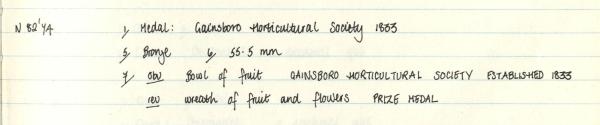 N 82'Y4 1, Medal: Gainsboro Horticultural Society 1833
5, Bronze 6, 55.5 mm
7, obv Bowl of fruit GAINSBORO HORTICULTURAL SOCIETY ESTABLISHED 1833
rev wreath of fruit and flowers PRIZE MEDAL